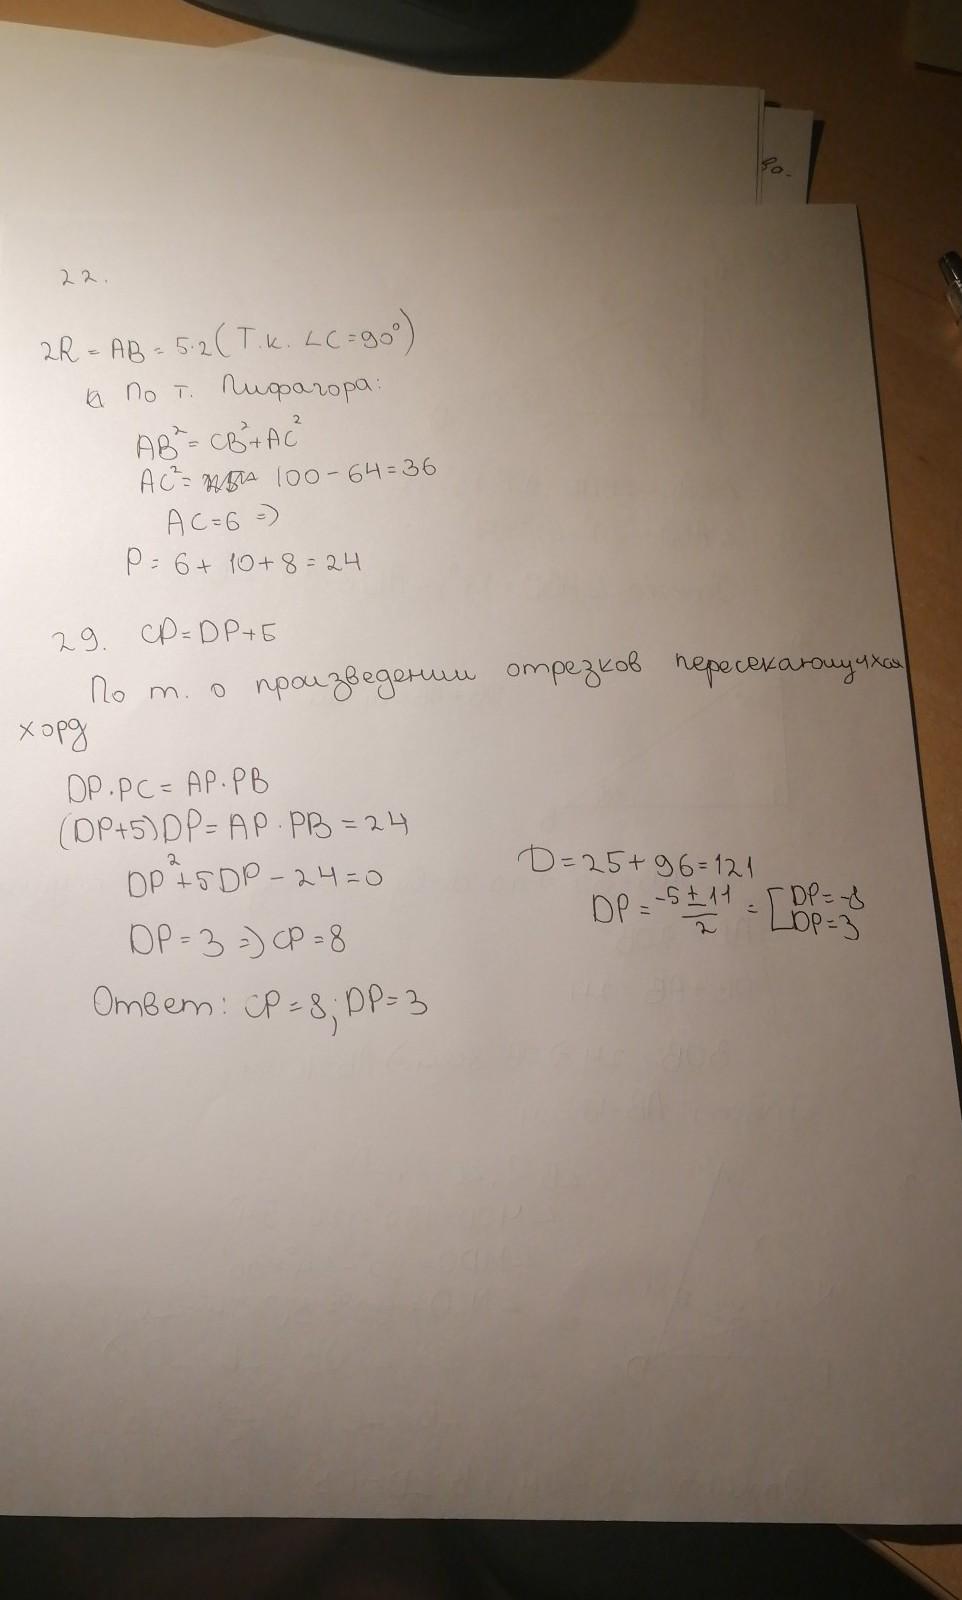 во-
22.
2R = AB = 5·2 (Т.к. ∠C=90°)
По т. Пифагора:
AB² = CB² + AC²
AC² = 100 - 64 = 36
AC = 6 =>
P = 6 + 10 + 8 = 24
29. CP = DP + 5
По т. о произведении отрезков пересекающихся
хорд
DP·PC = AP·PB
(DP+5)DP = AP·PB = 24
DP² + 5DP - 24 = 0
D = 25 + 96 = 121
DP = (-5 ± 11)/2 = [DP = -8
DP = 3
DP = 3 => CP = 8
Ответ: CP = 8; DP = 3